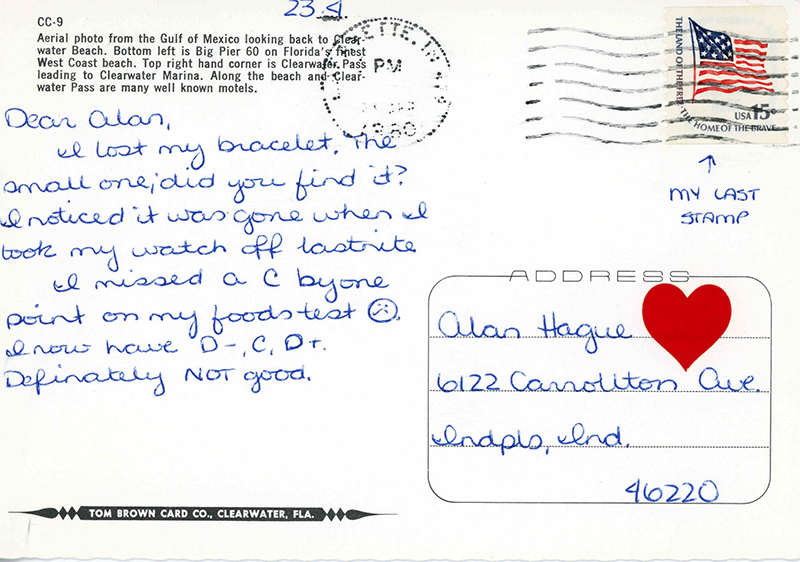 23.
CC-9
Aerial photo from the Gulf of Mexico looking back to Clear-
water Beach. Bottom left is Big Pier 60 on Florida's finest
West Coast beach. Top right hand corner is Clearwater Pass
leading to Clearwater Marina. Along the beach and Clear-
water Pass are many well known motels.
PM
1980
THE LAND OF THE FREE
THE HOME OF THE BRAVE
USA 15c
Dear Alan,
I lost my bracelet. The
small one; did you find it?
I noticed it was gone when I
took my watch off lastnite
I missed a C by one
point on my foods test ☹.
I now have D-, C, D+.
Definately NOT good.
↑
MY LAST
STAMP
ADDRESS
Alan Hague
6122 Carrollton Ave.
Indpls, Ind.
46220
TOM BROWN CARD CO., CLEARWATER, FLA.